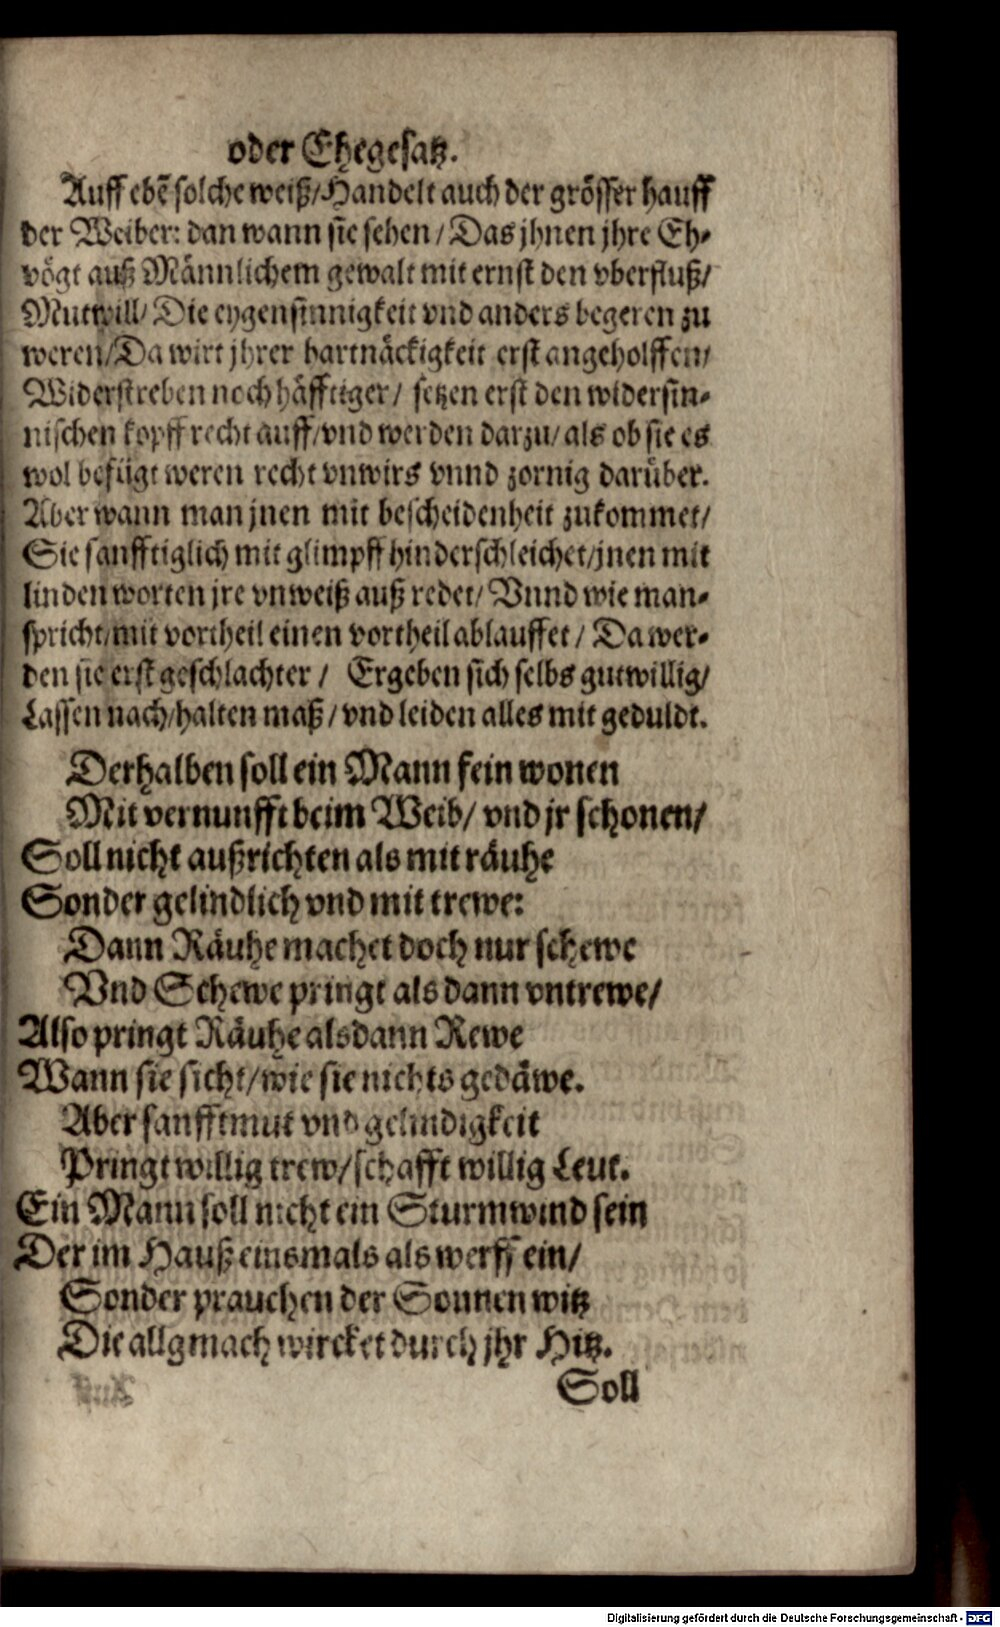 oder Ehegesatz.
Auff ebē solche weiß/Handelt auch der grösser hauff
der Weiber: dan wann sie sehen / Das jhnen jhre Eh-
vögt auß Männlichem gewalt mit ernst den vberfluß/
Mutwill/ Die eygensinnigkeit vnd anders begeren zu
weren/Da wirt jhrer hartnäckigkeit erst angeholffen/
Widerstreben noch häfftiger / setzen erst den widersin-
nischen kopff recht auff/vnd werden darzu/ als ob sie es
wol befügt weren recht vnwirs vnnd zornig darüber.
Aber wann man jnen mit bescheidenheit zukommet/
Sie sanfftiglich mit glimpff hinderschleichet/jnen mit
linden worten jre vnweiß auß redet/ Vnnd wie man-
spricht/mit vortheil einen vortheil ablauffet / Da wer-
den sie erst geschlachter / Ergeben sich selbs gutwillig/
Lassen nach/halten maß / vnd leiden alles mit geduldt.
Derhalben soll ein Mann fein wonen
Mit vernunfft beim Weib/ vnd jr schonen/
Soll nicht außrichten als mit räuhe
Sonder gelindlich vnd mit trewe:
Dann Räuhe machet doch nur schewe
Vnd Schewe pringt als dann vntrewe/
Also pringt Räuhe alsdann Rewe
Wann sie sicht/wie sie nichts gedäwe.
Aber sanfftmut vnd gelindigkeit
Pringt willig trew/schafft willig Leut.
Ein Mann soll nicht ein Sturmwind sein
Der im Hauß einsmals als werff ein/
Sonder prauchen der Sonnen witz
Die allgmach wircket durch jhr Hitz.
Soll
Digitalisierung gefördert durch die Deutsche Forschungsgemeinschaft - DFG